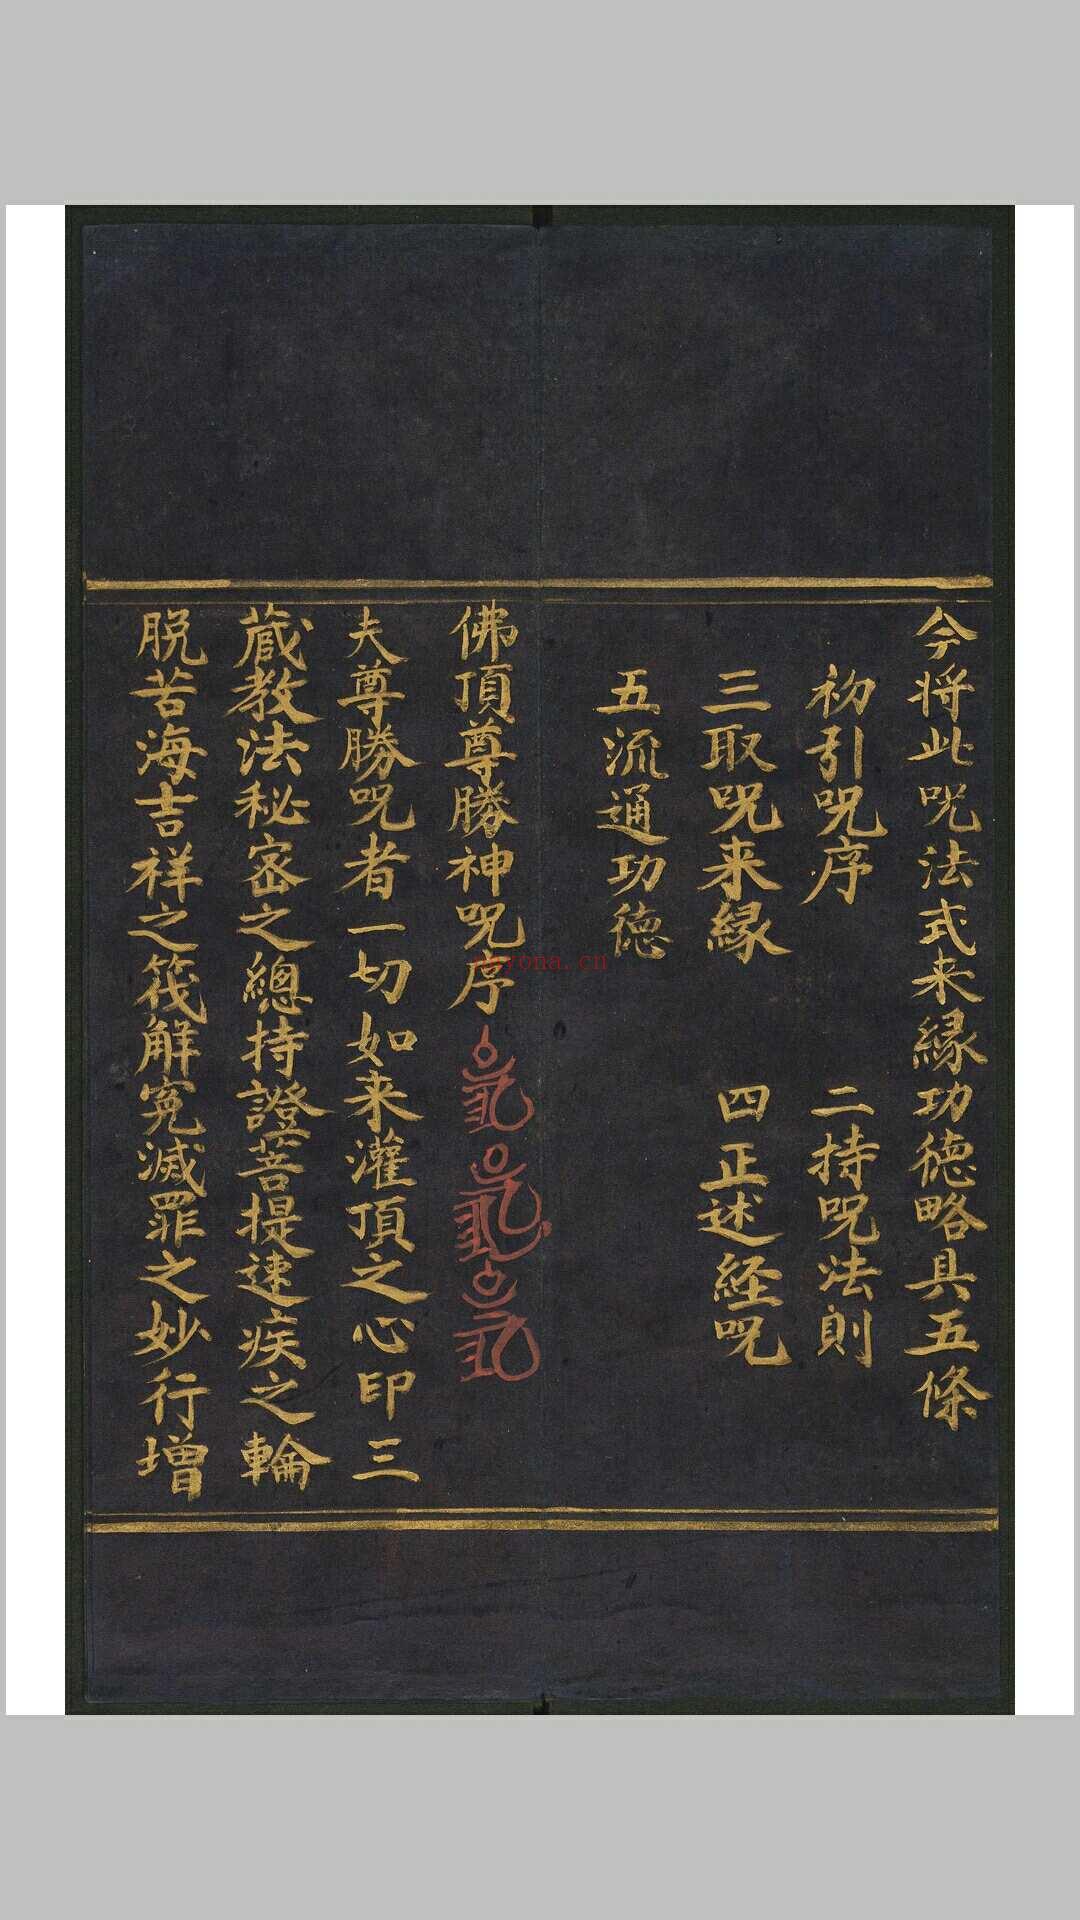 今将此呪法式来縁功德略具五條
初引呪序 二持呪法則
三取呪来縁 四正述経呪
五流通功德
佛頂尊勝神呪序
夫尊勝呪者一切如来灌頂之心印三
蔵教法秘密之總持證菩提速疾之輪
脱苦海吉祥之筏解寃滅罪之妙行增